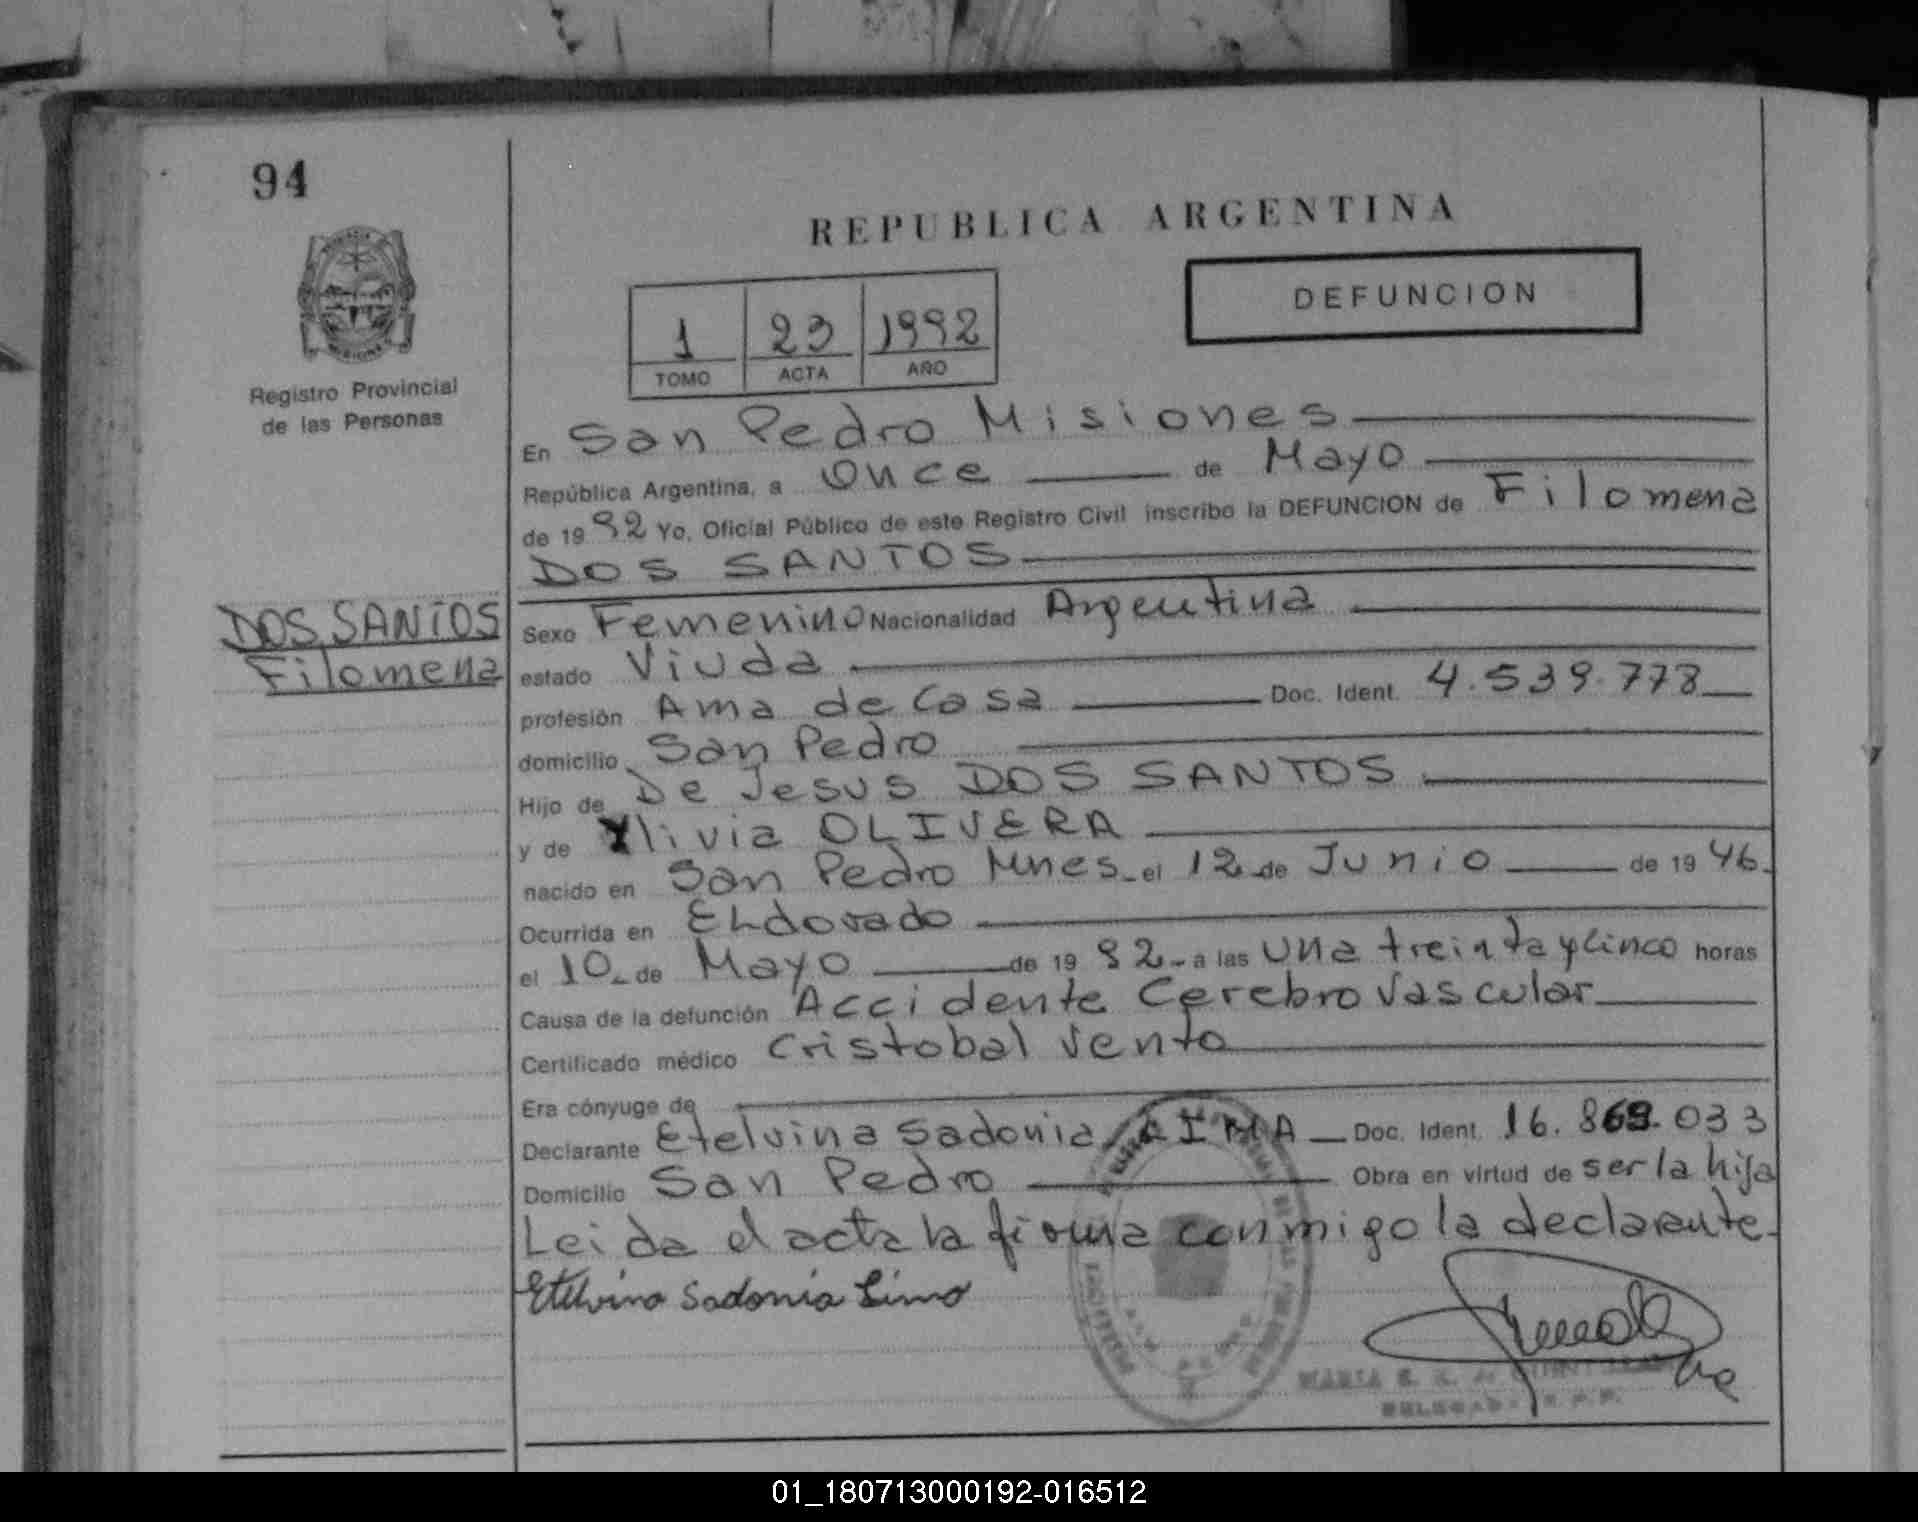 94
REPUBLICA ARGENTINA
DEFUNCION
1 23 1992
TOMO ACTA AÑO
Registro Provincial
de las Personas
En San Pedro Misiones
República Argentina, a Once de Mayo
de 1992 Yo, Oficial Público de este Registro Civil inscribo la DEFUNCION de Filomena
DOS SANTOS
DOS SANTOS
Filomena
Sexo Femenino Nacionalidad Argentina
estado Viuda
profesión Ama de Casa Doc. Ident. 4.539.778
domicilio San Pedro
Hijo de De Jesus DOS SANTOS
y de livia OLIVERA
nacido en San Pedro Mnes. el 12 de Junio de 1946.
Ocurrida en ELdorado
el 10 de Mayo de 1992 a las una treinta y cinco horas
Causa de la defunción Accidente Cerebro Vascular
Certificado médico Cristobal Vento
Era cónyuge de
Declarante Etelvina Sadonia LIMA Doc. Ident. 16.869.033
Domicilio San Pedro Obra en virtud de ser la hija
Leida el acta la firma conmigo la declarante.
Etelvina Sadonia Lima
MARIA
01_180713000192-016512